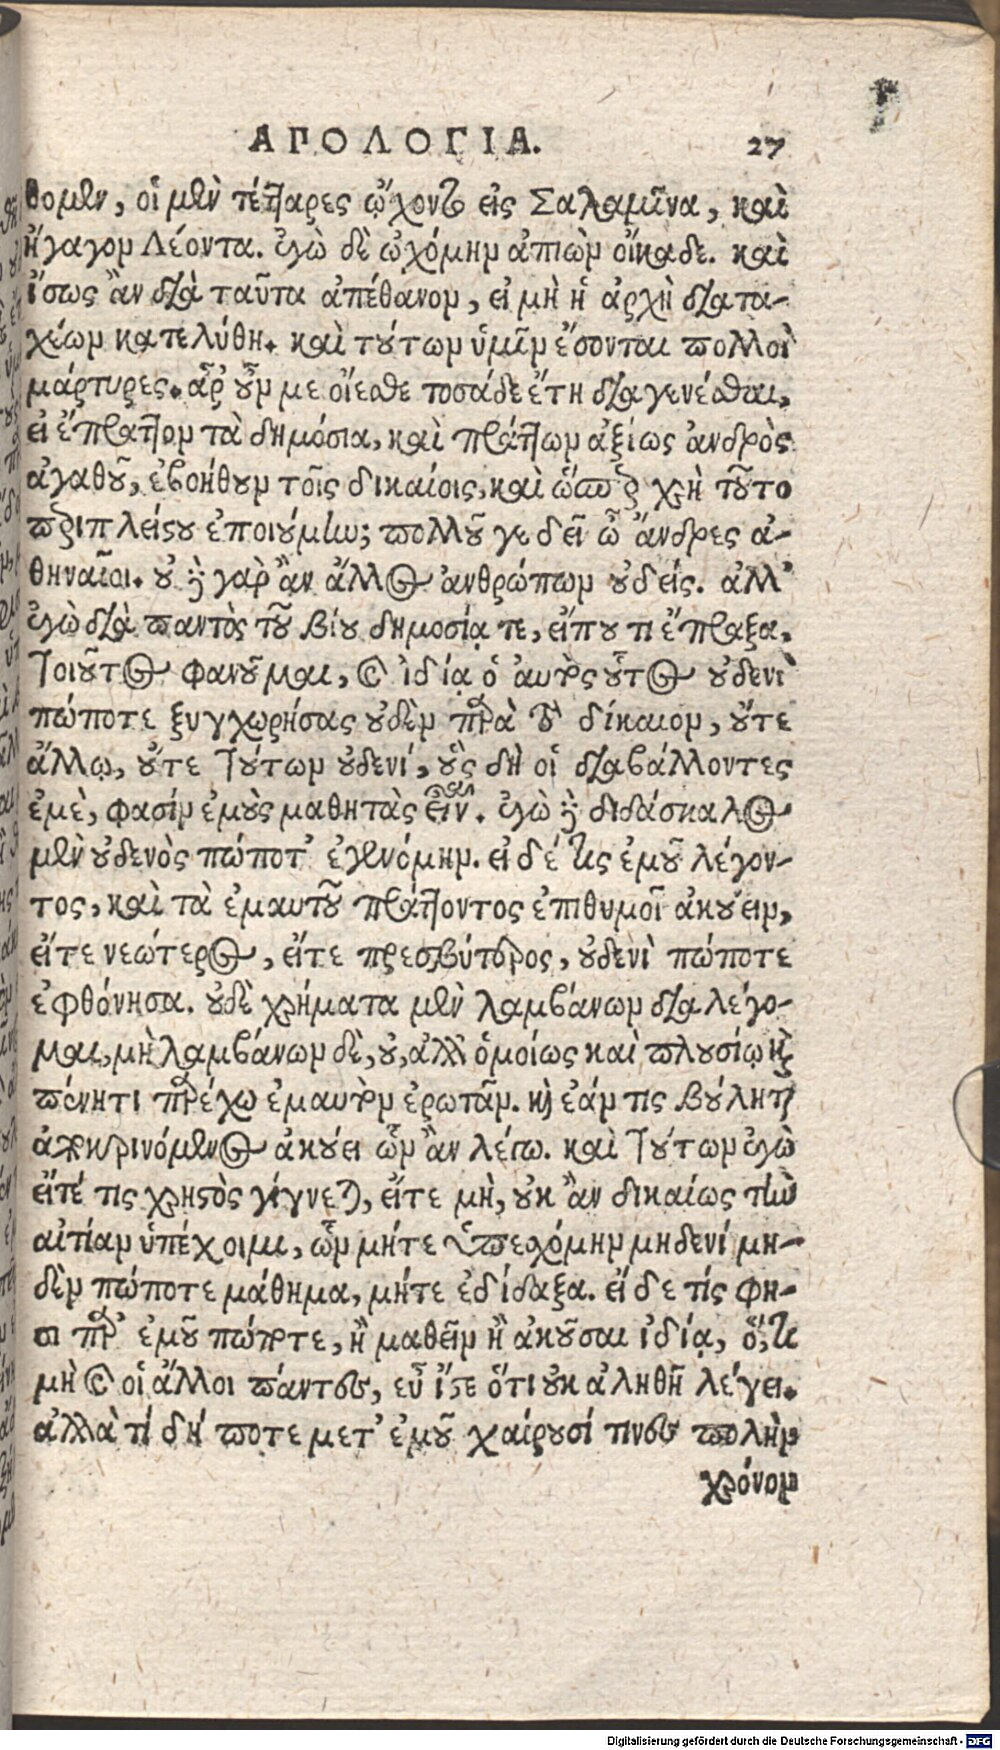 ΑΠΟΛΟΓΙΑ. 27
θομεν, οἱ μὲν τέτταρες ᾤχοντο εἰς Σαλαμῖνα, καὶ
ἤγαγον Λέοντα. ἐγὼ δὲ ᾠχόμην ἀπιὼν οἴκαδε. καὶ
ἴσως ἂν διὰ ταῦτα ἀπέθανον, εἰ μὴ ἡ ἀρχὴ διὰ τα-
χέων κατελύθη. καὶ τούτων ὑμῖν ἔσονται πολλοὶ
μάρτυρες. ἆρ' οὖν με οἴεσθε τοσάδε ἔτη διαγενέσθαι,
εἰ ἔπραττον τὰ δημόσια, καὶ πράττων ἀξίως ἀνδρὸς
ἀγαθοῦ, ἐβοήθουν τοῖς δικαίοις, καὶ ὥσπερ χρὴ τοῦτο
περὶ πλείστου ἐποιούμην; πολλοῦ γε δεῖ ὦ ἄνδρες ἀ-
θηναῖοι. οὐδὲ γὰρ ἂν ἄλλος ἀνθρώπων οὐδείς. ἀλλ'
ἐγὼ διὰ παντὸς τοῦ βίου δημοσίᾳ τε, εἴπου τι ἔπραξα,
τοιοῦτος φανοῦμαι, καὶ ἰδίᾳ ὁ αὐτὸς οὗτος οὐδενὶ
πώποτε ξυγχωρήσας οὐδὲν παρὰ τὸ δίκαιον, οὔτε
ἄλλῳ, οὔτε τούτων οὐδενί, οὓς δὴ οἱ διαβάλλοντες
ἐμὲ, φασὶν ἐμοὺς μαθητὰς εἶναι. ἐγὼ δὲ διδάσκαλος
μὲν οὐδενὸς πώποτ' ἐγενόμην. εἰ δέ τις ἐμοῦ λέγον-
τος, καὶ τὰ ἐμαυτοῦ πράττοντος ἐπιθυμοῖ ἀκούειν,
εἴτε νεώτερος, εἴτε πρεσβύτερος, οὐδενὶ πώποτε
ἐφθόνησα. οὐδὲ χρήματα μὲν λαμβάνων διαλέγο-
μαι, μὴ λαμβάνων δὲ, οὐ, ἀλλ' ὁμοίως καὶ πλουσίῳ καὶ
πένητι παρέχω ἐμαυτὸν ἐρωτᾶν. καὶ ἐάν τις βούληται
ἀποκρινόμενος ἀκούει ὧν ἂν λέγω. καὶ τούτων ἐγὼ
εἴτέ τις χρηστὸς γίγνεται, εἴτε μὴ, οὐκ ἂν δικαίως τὴν
αἰτίαν ὑπέχοιμι, ὧν μήτε ὑπεσχόμην μηδενὶ μη-
δὲν πώποτε μάθημα, μήτε ἐδίδαξα. εἰ δέ τίς φη-
σι παρ' ἐμοῦ πώποτε, ἢ μαθεῖν ἢ ἀκοῦσαι ἰδίᾳ, ὅ,τι
μὴ καὶ οἱ ἄλλοι πάντες, εὖ ἴστε ὅτι οὐκ ἀληθῆ λέγει.
ἀλλὰ τί δή ποτε μετ' ἐμοῦ χαίρουσί τινες πολὺν
χρόνον
Digitalisierung gefördert durch die Deutsche Forschungsgemeinschaft - DFG